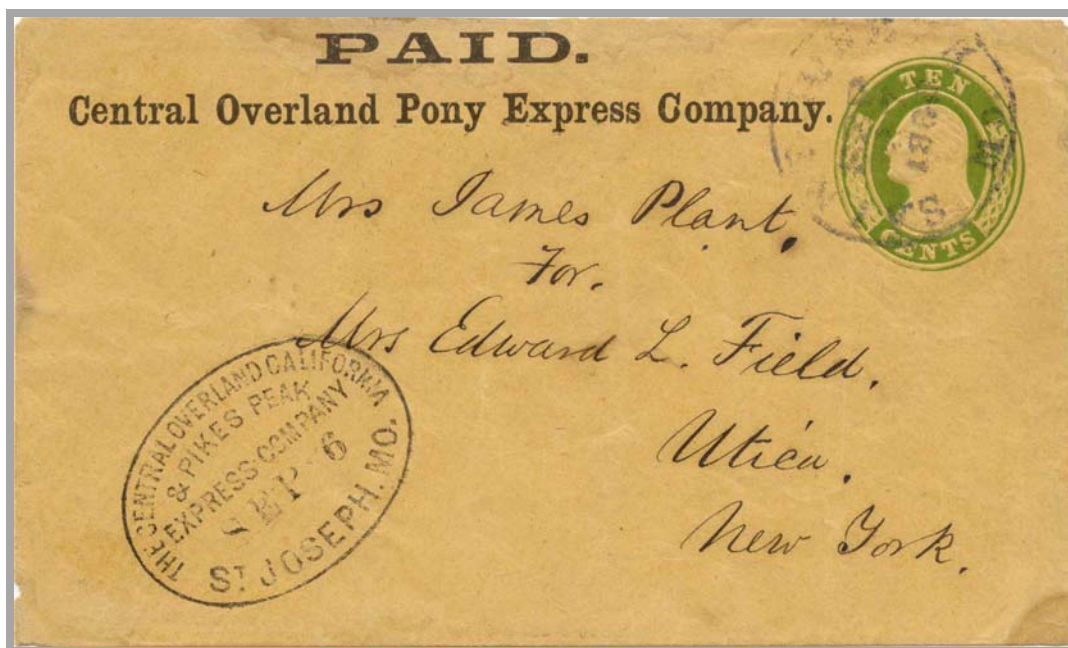 PAID.
Central Overland Pony Express Company.
TEN
CENTS
Mrs James Plant,
For.
Mrs Edward L. Field.
Utica.
New York.
THE CENTRAL OVERLAND CALIFORNIA
& PIKES PEAK
EXPRESS COMPANY
SEP 6
ST JOSEPH. MO.